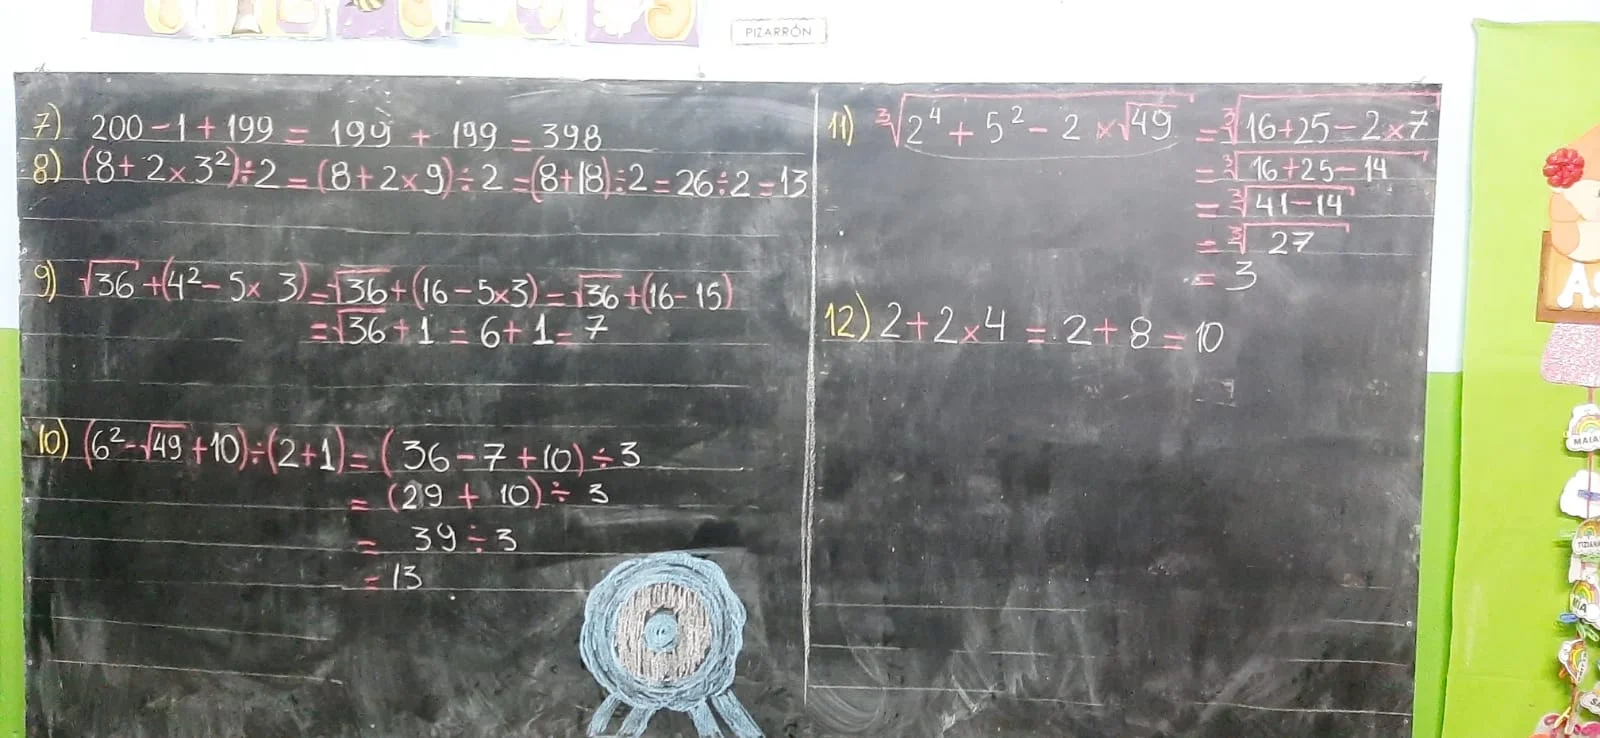 PIZARRÓN
7) 200 - 1 + 199 = 199 + 199 = 398
8) (8 + 2 × 3²) ÷ 2 = (8 + 2 × 9) ÷ 2 = (8 + 18) ÷ 2 = 26 ÷ 2 = 13
9) √36 + (4² - 5 × 3) = √36 + (16 - 5 × 3) = √36 + (16 - 15)
= √36 + 1 = 6 + 1 = 7
10) (6² - √49 + 10) ÷ (2 + 1) = (36 - 7 + 10) ÷ 3
= (29 + 10) ÷ 3
= 39 ÷ 3
= 13
11) ∛(2⁴ + 5² - 2 × √49) = ∛(16 + 25 - 2 × 7)
= ∛(16 + 25 - 14)
= ∛(41 - 14)
= ∛27
= 3
12) 2 + 2 × 4 = 2 + 8 = 10